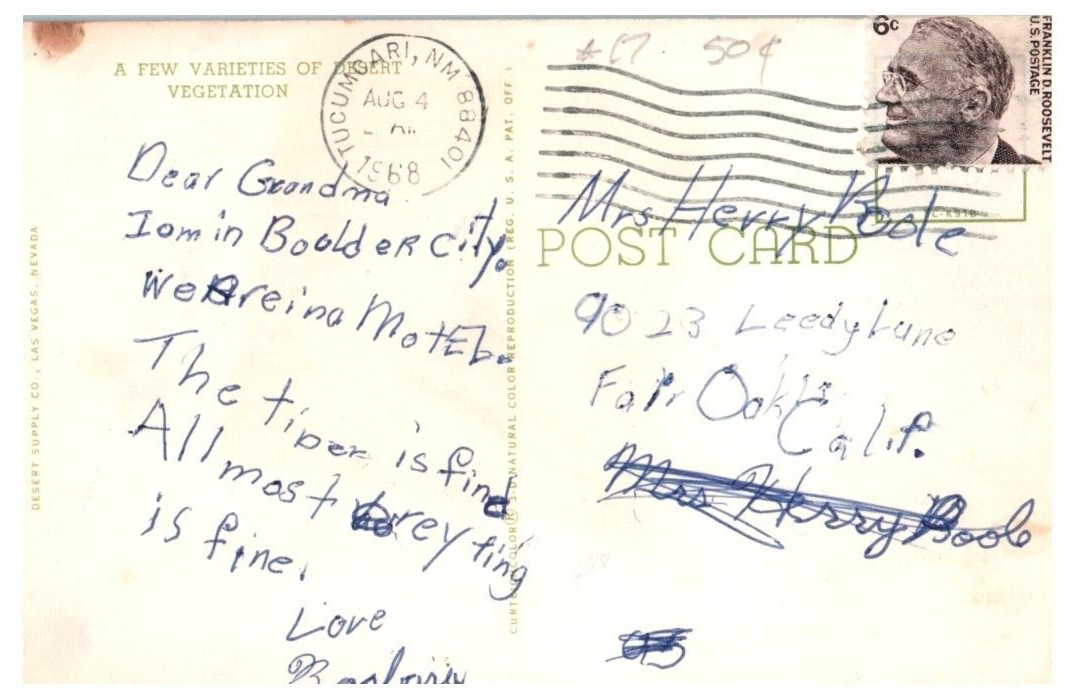 A FEW VARIETIES OF DESERT
VEGETATION
TUCUMCARI, NM 88401
AUG 4
1968
*17 50¢
6c
FRANKLIN D. ROOSEVELT
U.S. POSTAGE
Dear Grandma
I am in Boulder City.
We Are in a MotEL.
The tiper is find
All most
is fine.
Love
Mrs Herry Boole
POST CARD
9023 Leedy Lane
Fair Oaks
Calif.
Mrs Herry Boole
DESERT SUPPLY CO., LAS VEGAS, NEVADA
CURTEICHCOLOR® 3-D NATURAL COLOR REPRODUCTION (REG. U. S. A. PAT. OFF.)